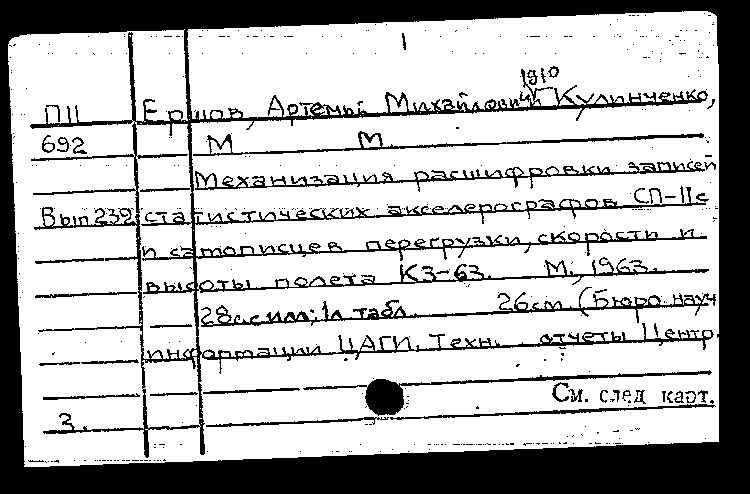 1
1910
П11 Ершов, Артемий Михайлович и Кулинченко,
692 М М
Механизация расшифровки записей
Вып 239 статистических акселерографов СП-11с
и самописцев перегрузки, скорости и
высоты полета КЗ-63. М., 1963.
28с.с илл; 1л табл. 26см (Бюро науч
информации ЦАГИ. Техн. отчеты Центр.
См. след карт.
3.